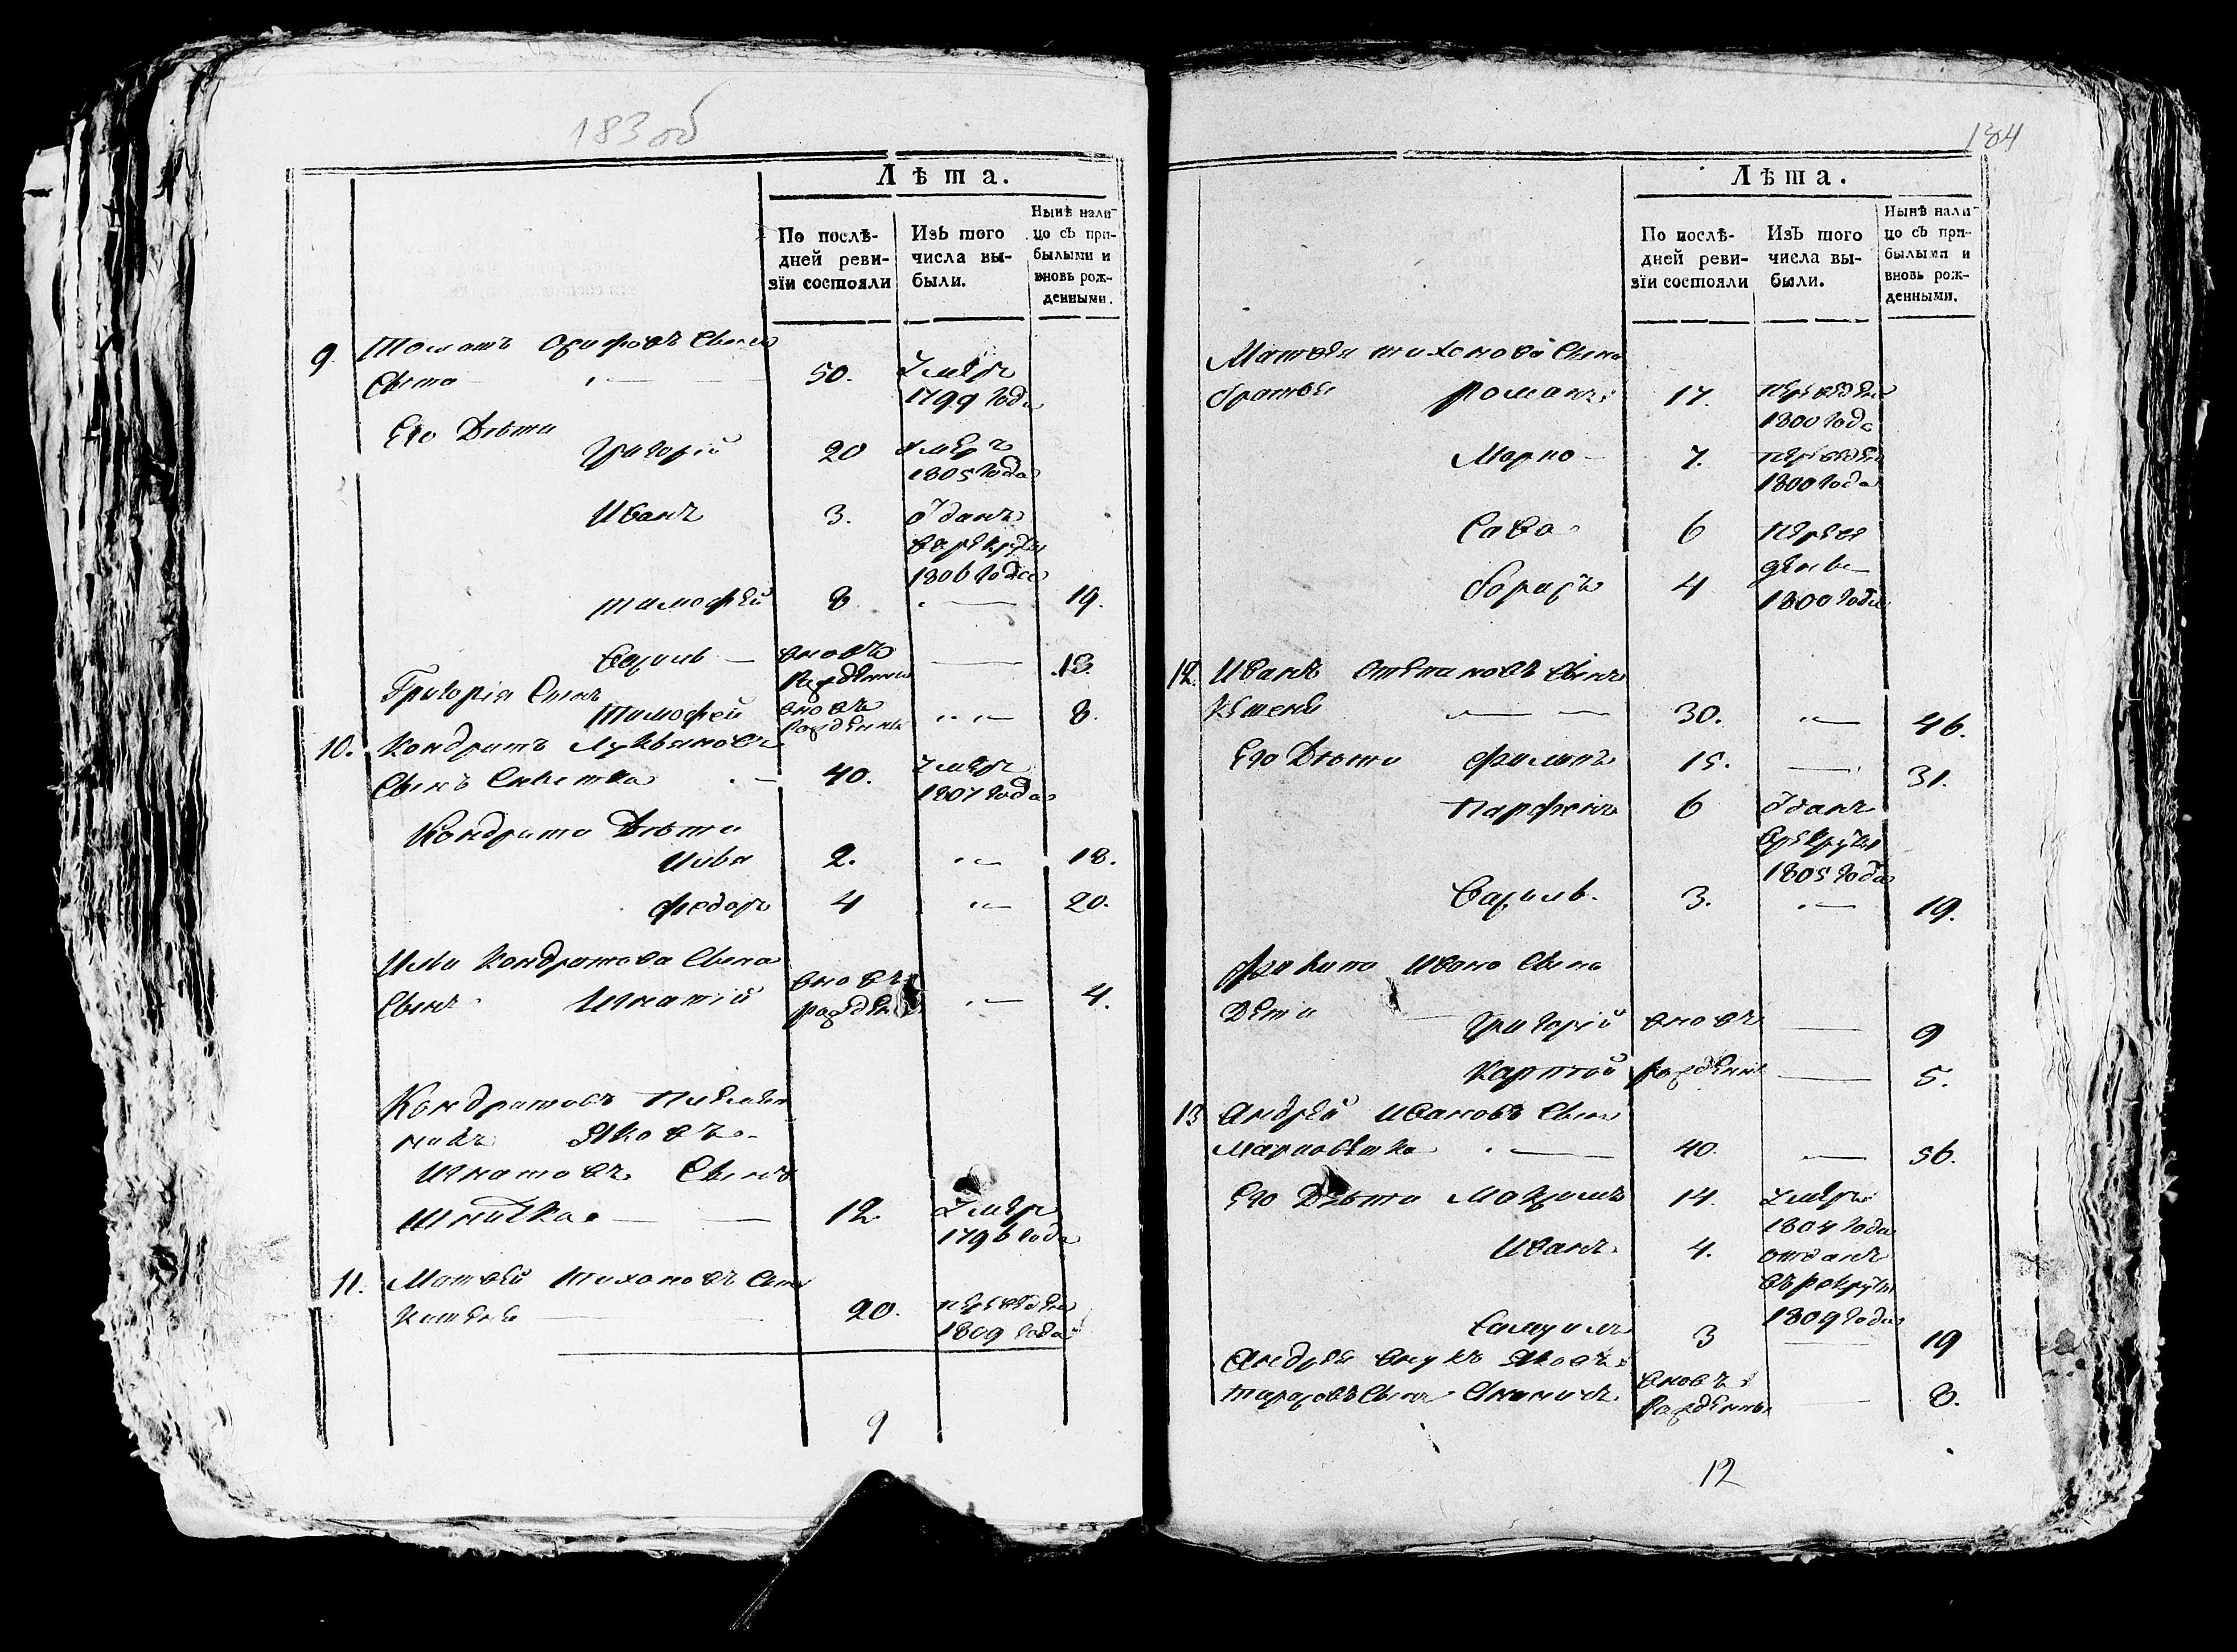 183 об
Лѣта.
По послѣ-
дней реви-
зїи состояли
Изъ того
числа вы-
были.
Нынѣ нали-
цо съ при-
былыми и
вновь рож-
денными.
9. Осиповъ Сынъ
50. умеръ
1799 года
Его Дѣти
Григорій 20 умеръ
1805 года
Иванъ 3. Отданъ
в рекруты
1806 года
тимофей 8 19.
Василь вновь 13.
рожденны
Григорія Сынъ
Тимофей вновь 8.
рожденны
10. Кондратъ Лукьяновъ
Сынъ 40. умеръ
1807 года
Кондрата Дѣти
Илья 2. 18.
Федоръ 4 20.
Ильи Кондратова Сына
Сынъ Игнатій вновь 4.
рожденъ
Кондратовъ племян
никъ Яковъ
Игнатовъ Сынъ
12. умеръ
1796 года
11. Матвей Тихоновъ Сынъ
20. переведенъ
1809 года
9
184
Лѣта.
По послѣ-
дней реви-
зїи состояли
Изъ того
числа вы-
были.
Нынѣ нали-
цо съ при-
былыми и
вновь рож-
денными.
Матвея тихонова Сына
братья Романъ 17. переведенъ
1800 года
Марко 7. переведенъ
1800 года
Сава 6 переве
Борисъ 4 дены
1800 года
12. Иванъ степановъ Сынъ
30. 46.
Его Дѣти Филипъ 15. 31.
Парфенъ 6 Отданъ
в рекруты
1805 года
Василь 3. 19.
Ивано Сына
Дети Григорій вновь 9
Карпой рожденны 5.
13 Андрей Ивановъ Сынъ
40. 56.
Его Дѣти Максимъ 14. умеръ
1804 года
Иванъ 4. отданъ
въ рекруты
1809 года
Самуилъ 3 19
Андрея внукъ Яковъ вновь
тарасовъ Сынъ рожденны 8.
12